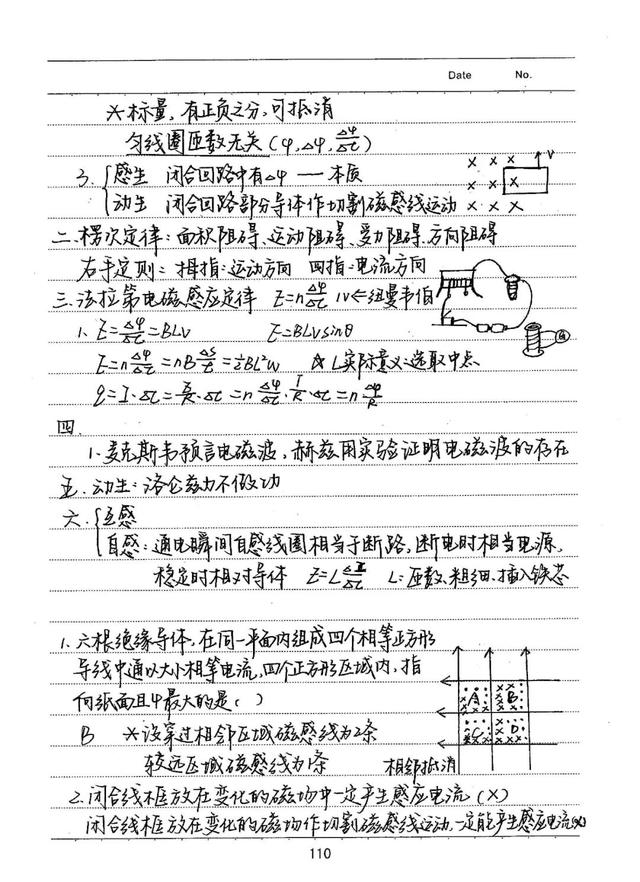 Date No.
*标量，有正负之分，可抵消
匀线圈匝数无关（φ, Δφ, Δφ/Δt）
3. { 感生 闭合回路中有Δφ — 本质
动生 闭合回路部分导体作切割磁感线运动
V
二.楞次定律：面积阻碍、运动阻碍、受力阻碍、方向阻碍
右手定则：拇指：运动方向 四指：电流方向
三.法拉第电磁感应定律 E=nΔφ/Δt 1V←纽曼韦伯
1. E=Δφ/Δt=BLV E=BLVsinθ
E=nΔφ/Δt=nBΔS/t=½BL²W ☆L实际意义：选取中点
q=I·Δt=E/R·Δt=nΔφ/Δt·1/R·Δt=nΔφ/R
G
四.
1.麦克斯韦预言电磁波，赫兹用实验证明电磁波的存在
五.动生：洛仑兹力不做功
六.{ 互感
自感：通电瞬间自感线圈相当于断路，断电时相当电源，
稳定时相对导体 E=LΔI/Δt L：匝数、粗细、插入铁芯
1.六根绝缘导体，在同一平面内组成四个相等正方形
导线中通以大小相等电流，四个正方形区域内，指
向纸面且φ最大的是（）
A B
C D
B *设穿过相邻区域磁感线为2条
较远区域磁感线为1条 相邻抵消
2.闭合线框放在变化的磁场中一定产生感应电流（×）
闭合线框放在变化的磁场作切割磁感线运动，一定能产生感应电流（×）
110